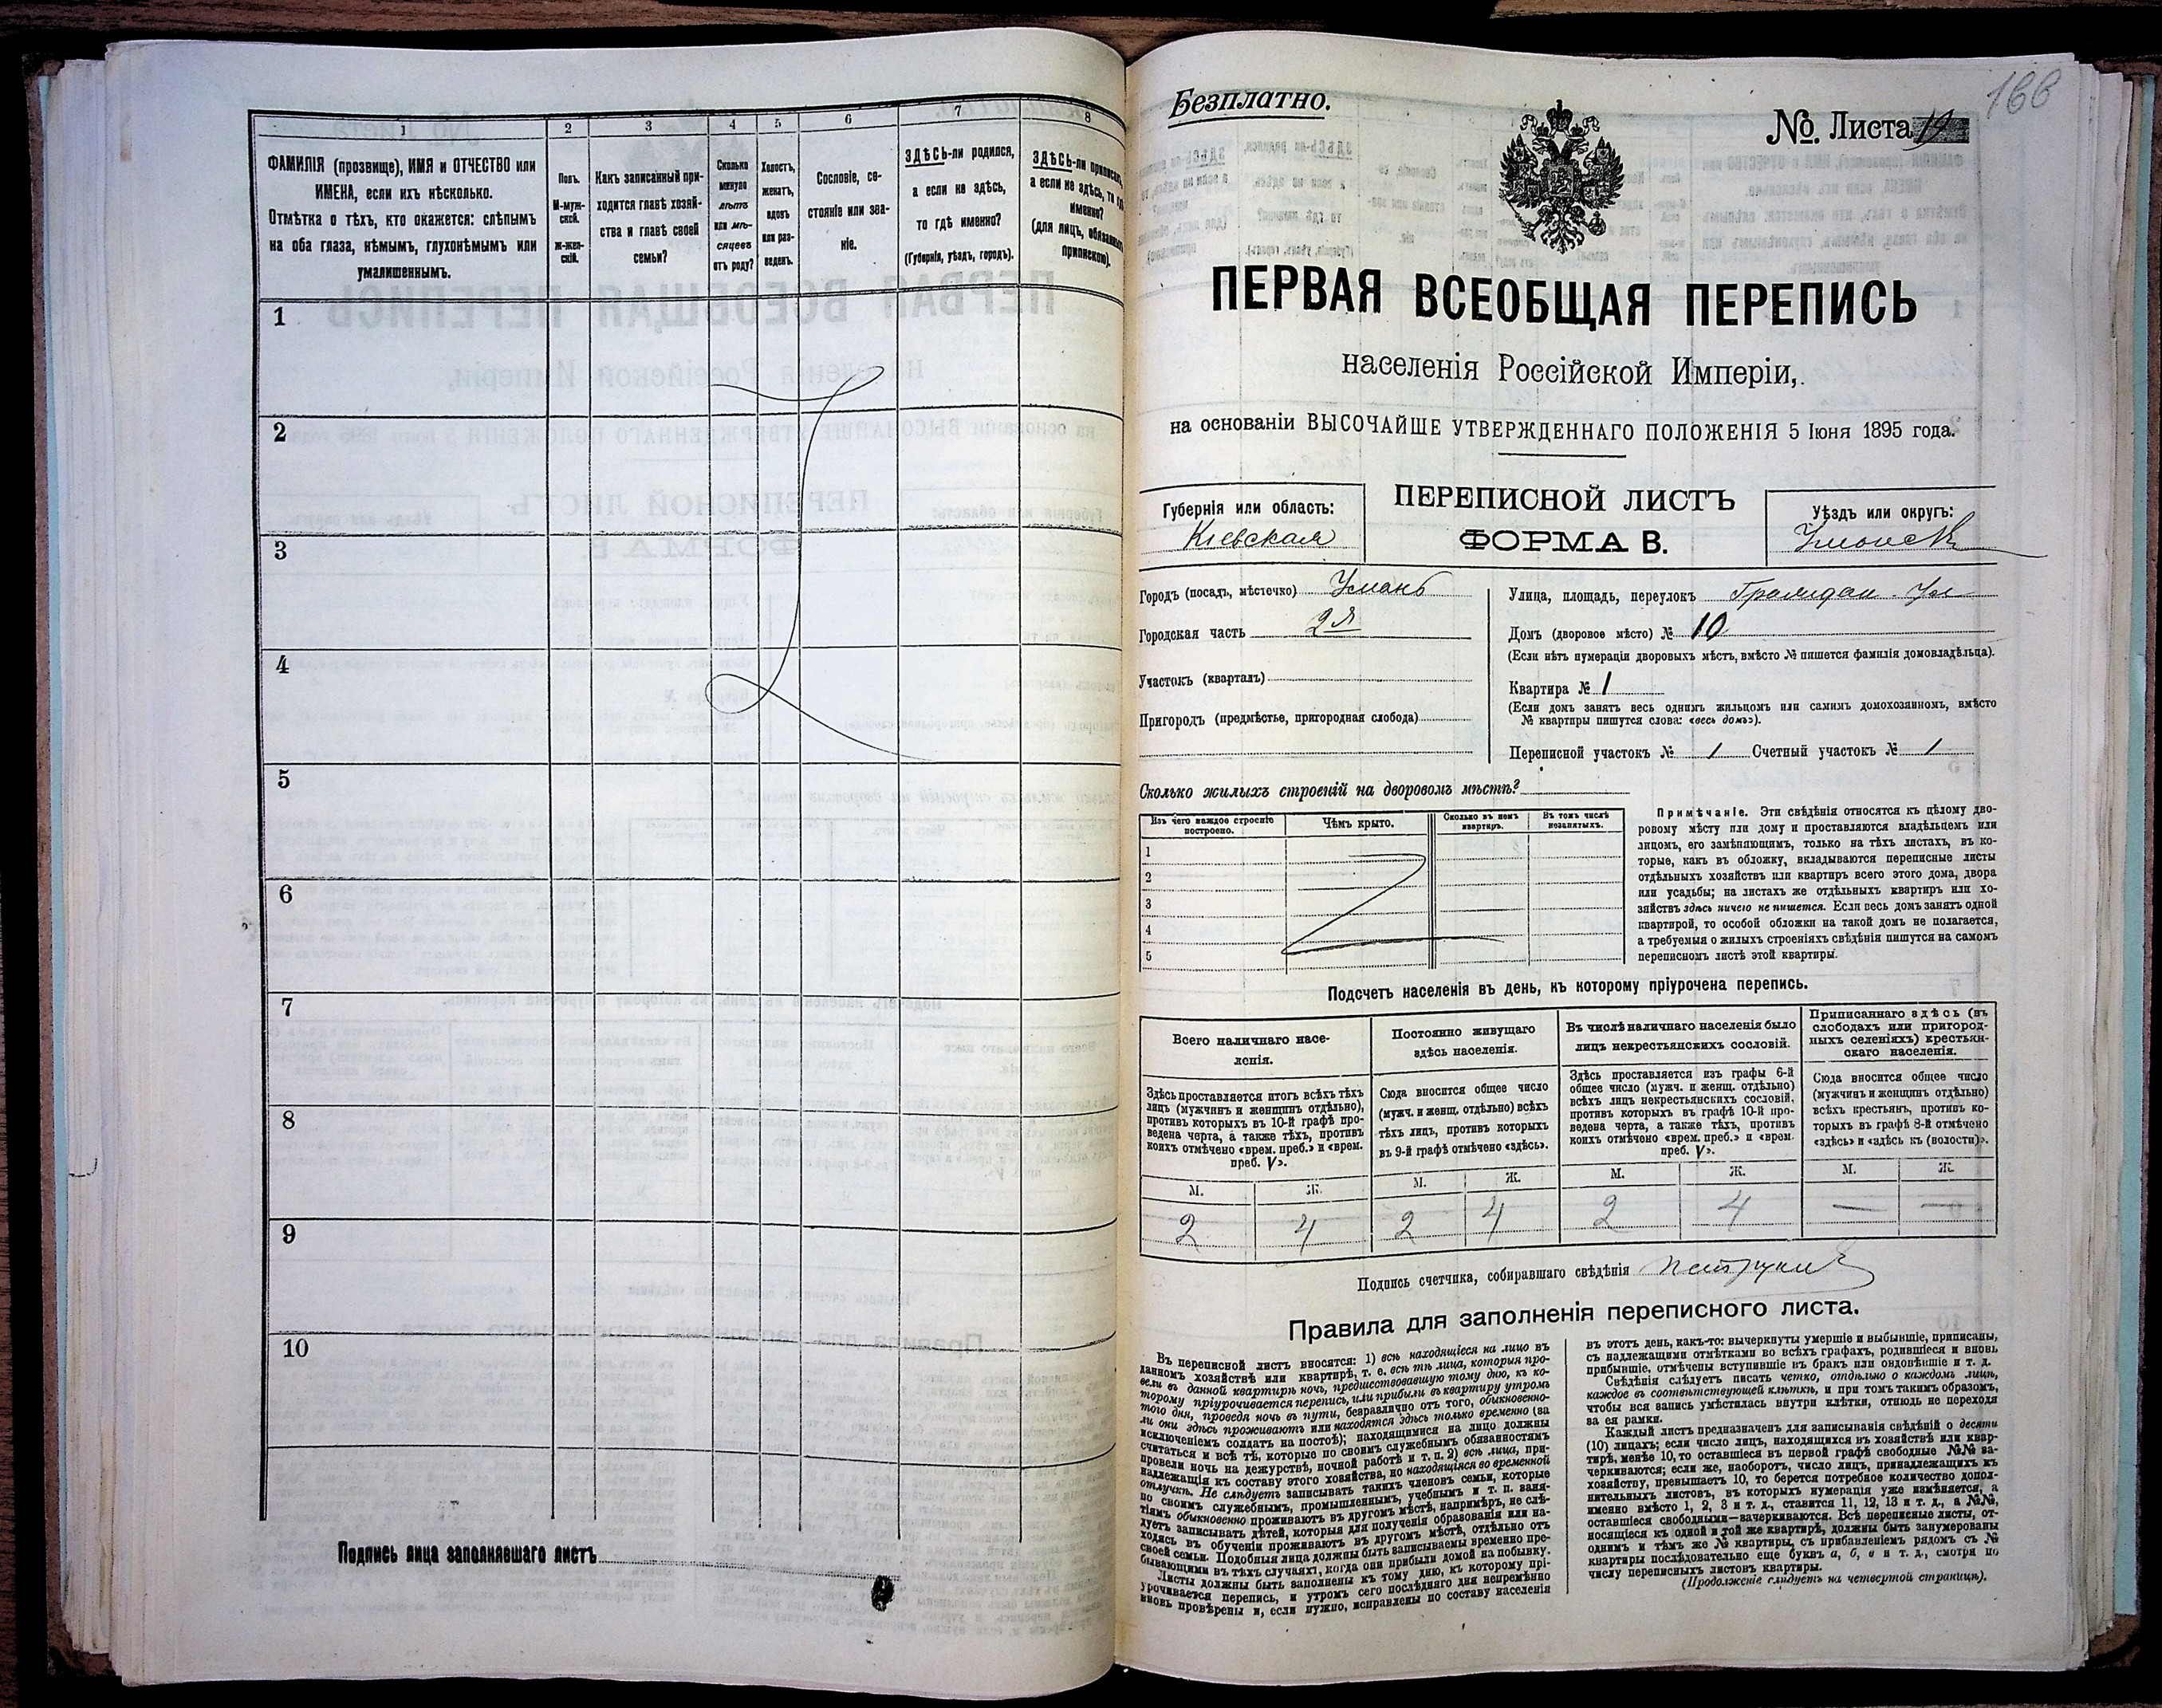 1
2
3
4
5
6
7
8
ФАМИЛІЯ (прозвище), ИМЯ и ОТЧЕСТВО или
ИМЕНА, если ихъ нѣсколько.
Отмѣтка о тѣхъ, кто окажется: слѣпымъ
на оба глаза, нѣмымъ, глухонѣмымъ или
умалишеннымъ.
Полъ.
М-муж-
ской.
Ж-жен-
скій.
Какъ записанный при-
ходится главѣ хозяй-
ства и главѣ своей
семьи?
Сколько
минуло
лѣтъ
или мѣ-
сяцевъ
отъ роду?
Холостъ,
женатъ,
вдовъ
или раз-
веденъ.
Сословіе, со-
стояніе или зва-
ніе.
ЗДѢСЬ-ли родился,
а если не здѣсь,
то гдѣ именно?
(Губернія, уѣздъ, городъ).
ЗДѢСЬ-ли приписанъ,
а если не здѣсь, то гдѣ
именно?
(для лицъ, обязанныхъ
припискою).
1
2
3
4
5
6
7
8
9
10
Подпись лица заполнявшаго листъ
166
Безплатно.
№ Листа 19
ПЕРВАЯ ВСЕОБЩАЯ ПЕРЕПИСЬ
населенія Россійской Имперіи,
на основаніи ВЫСОЧАЙШЕ УТВЕРЖДЕННАГО ПОЛОЖЕНІЯ 5 Іюня 1895 года.
Губернія или область:
Кіевская
ПЕРЕПИСНОЙ ЛИСТЪ
ФОРМА В.
Уѣздъ или округъ:
Уманск
Городъ (посадъ, мѣстечко) Умань
Городская часть 2я
Участокъ (кварталъ)
Пригородъ (предмѣстье, пригородная слобода)
Улица, площадь, переулокъ Граждан. Ул
Домъ (дворовое мѣсто) № 10
(Если нѣтъ нумераціи дворовыхъ мѣстъ, вмѣсто № пишется фамилія домовладѣльца).
Квартира № 1
(Если домъ занятъ весь однимъ жильцомъ или самимъ домохозяиномъ, вмѣсто
№ квартиры пишутся слова: «весь домъ»).
Переписной участокъ № 1 Счетный участокъ № 1
Сколько жилыхъ строеній на дворовомъ мѣстѣ?
Изъ чего каждое строеніе
построено.
Чѣмъ крыто.
Сколько въ немъ
квартиръ.
Въ томъ числѣ
незанятыхъ.
1
2
3
4
5
Примѣчаніе. Эти свѣдѣнія относятся къ цѣлому дво-
ровому мѣсту или дому и проставляются владѣльцемъ или
лицомъ, его замѣняющимъ, только на тѣхъ листахъ, въ ко-
торые, какъ въ обложку, вкладываются переписные листы
отдѣльныхъ хозяйствъ или квартиръ всего этого дома, двора
или усадьбы; на листахъ же отдѣльныхъ квартиръ или хо-
зяйствъ здѣсь ничего не пишется. Если весь домъ занятъ одной
квартирой, то особой обложки на такой домъ не полагается,
а требуемыя о жилыхъ строеніяхъ свѣдѣнія пишутся на самомъ
переписномъ листѣ этой квартиры.
Подсчетъ населенія въ день, къ которому пріурочена перепись.
Всего наличнаго насе-
ленія.
Здѣсь проставляется итогъ всѣхъ тѣхъ
лицъ (мужчинъ и женщинъ отдѣльно),
противъ которыхъ въ 10-й графѣ про-
ведена черта, а также тѣхъ, противъ
коихъ отмѣчено «врем. преб.» и «врем.
преб. V».
М. Ж.
2 4
Постоянно живущаго
здѣсь населенія.
Сюда вносится общее число
(мужч. и женщ. отдѣльно) всѣхъ
тѣхъ лицъ, противъ которыхъ
въ 9-й графѣ отмѣчено «здѣсь».
М. Ж.
2 4
Въ числѣ наличнаго населенія было
лицъ некрестьянскихъ сословій.
Здѣсь проставляется изъ графы 6-й
общее число (мужч. и женщ. отдѣльно)
всѣхъ лицъ некрестьянскихъ сословій,
противъ которыхъ въ графѣ 10-й про-
ведена черта, а также тѣхъ, противъ
коихъ отмѣчено «врем. преб.» и «врем.
преб. V».
М. Ж.
2 4
Приписаннаго здѣсь (въ
слободахъ или пригород-
ныхъ селеніяхъ) крестьян-
скаго населенія.
Сюда вносится общее число
(мужчинъ и женщинъ отдѣльно)
всѣхъ крестьянъ, противъ ко-
торыхъ въ графѣ 8-й отмѣчено
«здѣсь» и «здѣсь къ (волости)».
М. Ж.
— —
Подпись счетчика, собиравшаго свѣдѣнія
Правила для заполненія переписного листа.
Въ переписной листъ вносятся: 1) всѣ находящіеся на лицо въ
данномъ хозяйствѣ или квартирѣ, т. е. всѣ тѣ лица, которыя про-
вели въ данной квартирѣ ночь, предшествовавшую тому дню, къ ко-
торому пріурочивается перепись, или прибыли въ квартиру утромъ
того дня, проведя ночь въ пути, безразлично отъ того, обыкновенно-
ли они здѣсь проживаютъ или находятся здѣсь только временно (за
исключеніемъ солдатъ на постоѣ); находящимися на лицо должны
считаться и всѣ тѣ, которые по своимъ служебнымъ обязанностямъ
провели ночь на дежурствѣ, ночной работѣ и т. п. 2) всѣ лица, при-
надлежащія къ составу этого хозяйства, но находящіяся во временной
отлучкѣ. Не слѣдуетъ записывать такихъ членовъ семьи, которые
по своимъ служебнымъ, промышленнымъ, учебнымъ и т. п. заня-
тіямъ обыкновенно проживаютъ въ другомъ мѣстѣ, напримѣръ, не слѣ-
дуетъ записывать дѣтей, которыя для полученія образованія или на-
ходясь въ обученіи проживаютъ въ другомъ мѣстѣ, отдѣльно отъ
своей семьи. Подобныя лица должны быть записываемы временно пре-
бывающими въ тѣхъ случаяхъ, когда они прибыли домой на побывку.
Листы должны быть заполнены къ тому дню, къ которому прі-
урочивается перепись, и утромъ сего послѣдняго дня непремѣнно
вновь провѣрены и, если нужно, исправлены по составу населенія
въ этотъ день, какъ-то: вычеркнуты умершіе и выбывшіе, приписаны,
съ надлежащими отмѣтками во всѣхъ графахъ, родившіеся и вновь
прибывшіе, отмѣчены вступившіе въ бракъ или овдовѣвшіе и т. д.
Свѣдѣнія слѣдуетъ писать четко, отдѣльно о каждомъ лицѣ,
каждое въ соотвѣтствующей клѣткѣ, и при томъ такимъ образомъ,
чтобы вся запись умѣстилась внутри клѣтки, отнюдь не переходя
за ея рамки.
Каждый листъ предназначенъ для записыванія свѣдѣній о десяти
(10) лицахъ; если число лицъ, находящихся въ хозяйствѣ или квар-
тирѣ, менѣе 10, то оставшіеся въ первой графѣ свободные №№ за-
черкиваются; если же, наоборотъ, число лицъ, принадлежащихъ къ
хозяйству, превышаетъ 10, то берется потребное количество допол-
нительныхъ листовъ, въ которыхъ нумерація уже измѣняется, а
именно вмѣсто 1, 2, 3 и т. д., ставится 11, 12, 13 и т. д., а №№,
оставшіеся свободными—зачеркиваются. Всѣ переписные листы, от-
носящіеся къ одной и той же квартирѣ, должны быть занумерованы
однимъ и тѣмъ же № квартиры, съ прибавленіемъ рядомъ съ №
квартиры послѣдовательно еще буквъ а, б, в и т. д., смотря по
числу переписныхъ листовъ квартиры.
(Продолженіе слѣдуетъ на четвертой страницѣ).